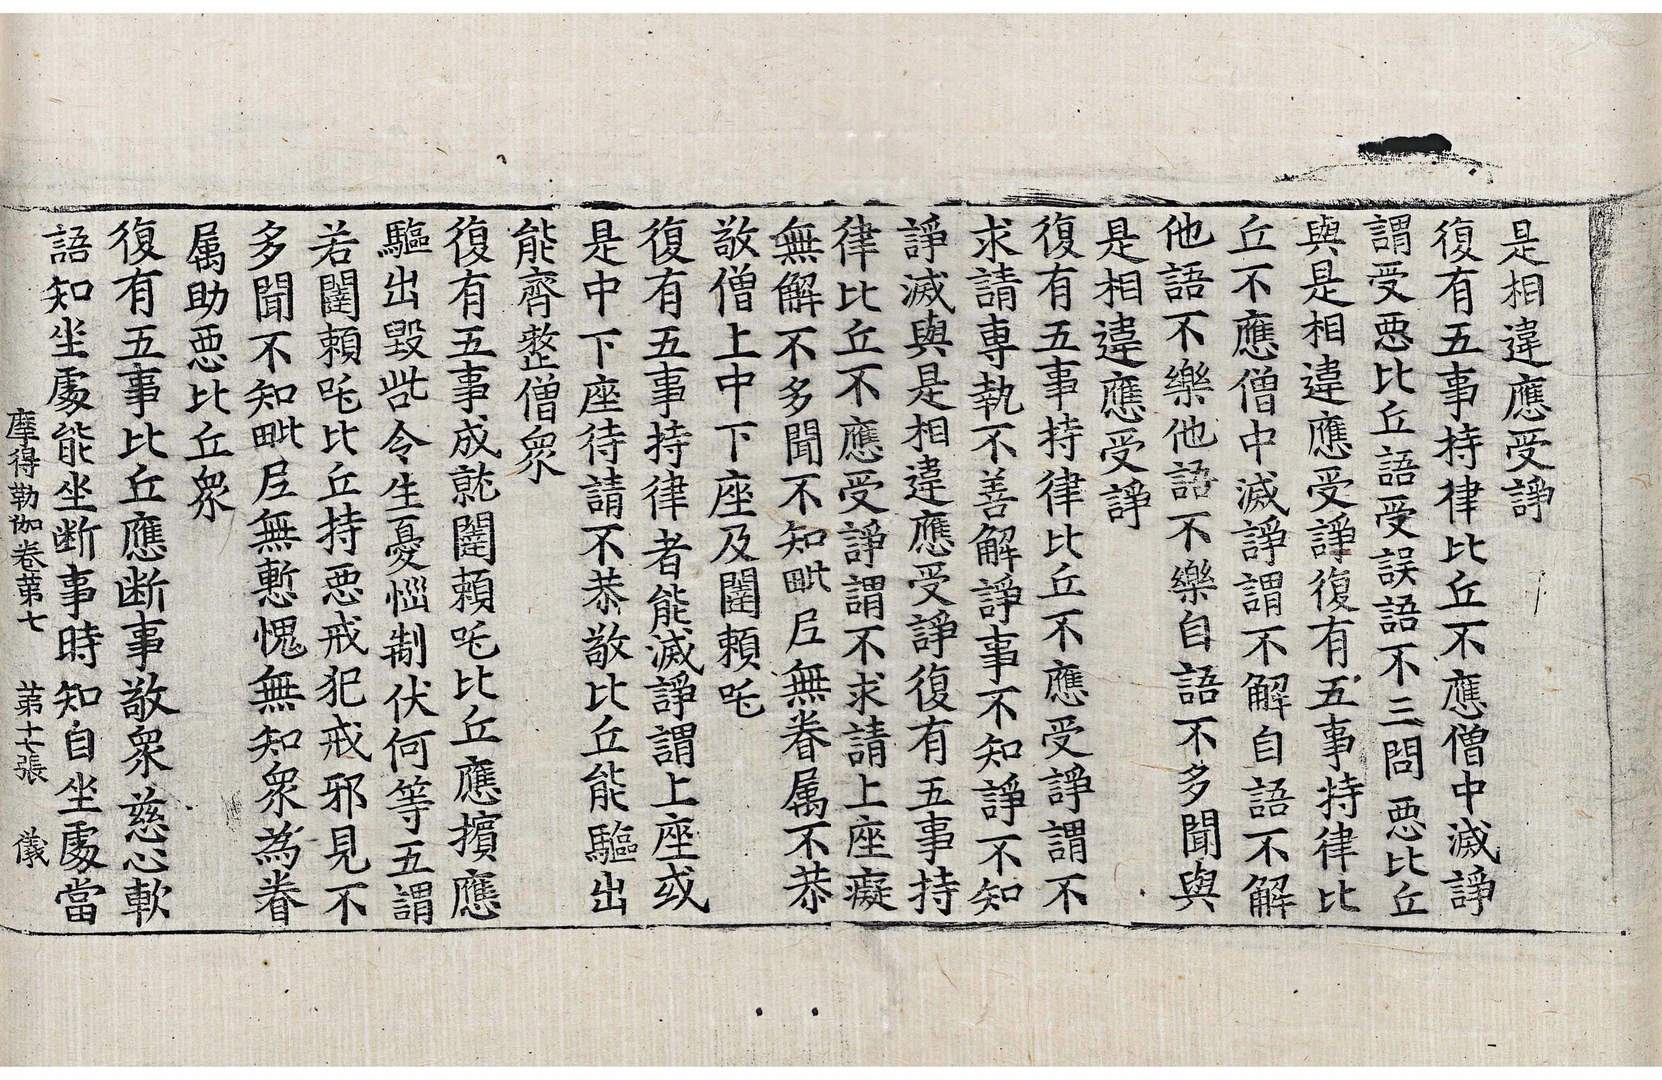 是相違應受諍
復有五事持律比丘不應僧中滅諍
謂受惡比丘語受誤語不三問惡比丘
與是相違應受諍復有五事持律比
丘不應僧中滅諍謂不解自語不解
他語不樂他語不樂自語不多聞與
是相違應受諍
復有五事持律比丘不應受諍謂不
求請專執不善解諍事不知諍不知
諍滅與是相違應受諍復有五事持
律比丘不應受諍謂不求請上座癡
無解不多聞不知毗尼無眷属不恭
敬僧上中下座及闥賴吒
復有五事持律者能滅諍謂上座或
是中下座待請不恭敬比丘能驅出
能齊整僧衆
復有五事成就闥賴吒比丘應擯應
驅出毀呰令生憂惱制伏何等五謂
若闥賴吒比丘持惡戒犯戒邪見不
多聞不知毗尼無慙愧無知衆為眷
属助惡比丘衆
復有五事比丘應断事敬衆慈心軟
語知坐處能坐断事時知自坐處當
摩得勒伽卷苐七 苐十七張 儀